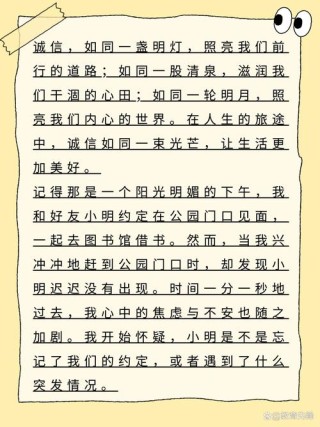 诚信，如同一盏明灯，照亮我们前
行的道路；如同一股清泉，滋润我
们干涸的心田；如同一轮明月，照
亮我们内心的世界。在人生的旅途
中，诚信如同一束光芒，让生活更
加美好。
记得那是一个阳光明媚的下午，我
和好友小明约定在公园门口见面，
一起去图书馆借书。然而，当我兴
冲冲地赶到公园门口时，却发现小
明迟迟没有出现。时间一分一秒地
过去，我心中的焦虑与不安也随之
加剧。我开始怀疑，小明是不是忘
记了我们的约定，或者遇到了什么
突发情况。